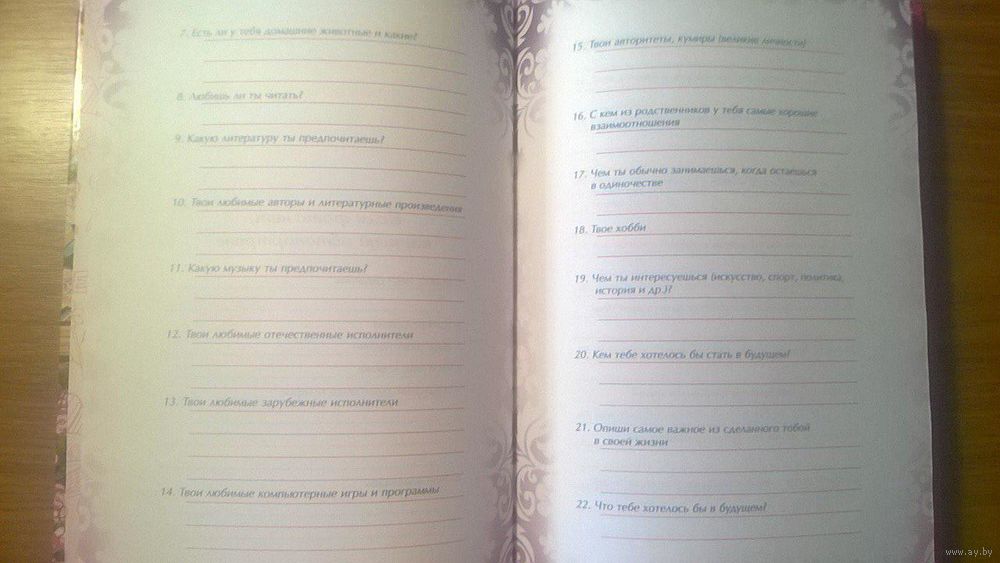 7. Есть ли у тебя домашние животные и какие?
8. Любишь ли ты читать?
9. Какую литературу ты предпочитаешь?
10. Твои любимые авторы и литературные произведения
11. Какую музыку ты предпочитаешь?
12. Твои любимые отечественные исполнители
13. Твои любимые зарубежные исполнители
14. Твои любимые компьютерные игры и программы
15. Твои авторитеты, кумиры (великие личности)
16. С кем из родственников у тебя самые хорошие
взаимоотношения
17. Чем ты обычно занимаешься, когда остаешься
в одиночестве
18. Твое хобби
19. Чем ты интересуешься (искусство, спорт, политика,
история и др.)?
20. Кем тебе хотелось бы стать в будущем?
21. Опиши самое важное из сделанного тобой
в своей жизни
22. Что тебе хотелось бы в будущем?
www.ay.by